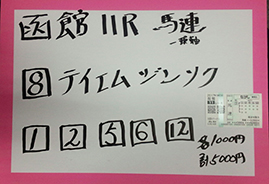 函館11R 馬連
8 テイエムジンソク
1 2 5 6 12
各1000円
計5000円